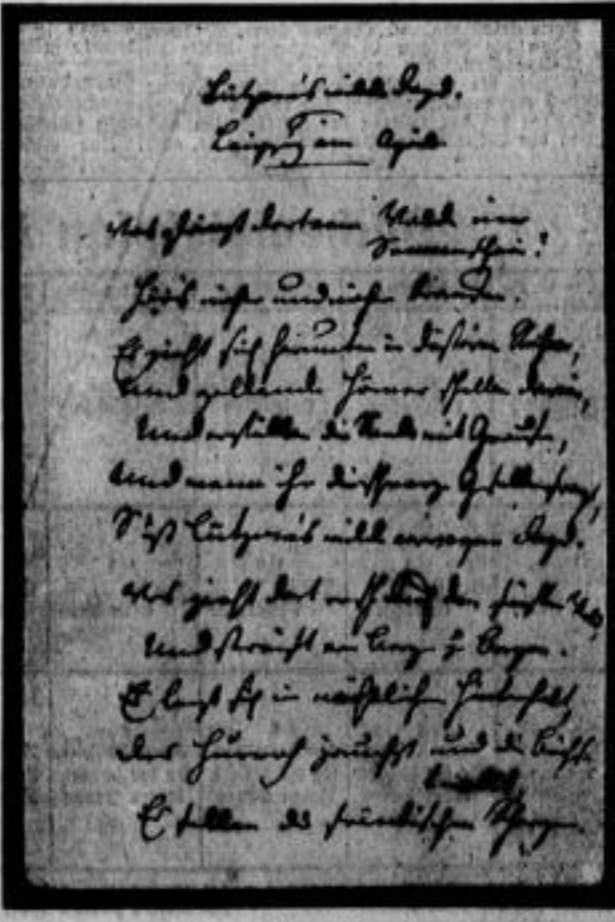 Lützow's wilde Jagd.
Leipzig im April
Was glänzt dort vom Walde im
Sonnenschein?
Hör's näher und näher brausen.
Es zieht sich herunter in düstren Reihn,
Und gellende Hörner schallen darein,
Und erfüllen die Seele mit Grausen,
Und wenn ihr die schwarzen Gesellen fragt,
S' ist Lützow's wilde verwegene Jagd.
Was zieht dort rasch durch den finstern Wald
Und streift von Berg zu Bergen.
Es legt sich in nächtlichen Hinterhalt,
Das Hurrah jauchzt und die Büchse
knallt,
Es fallen die fränkischen Schergen.